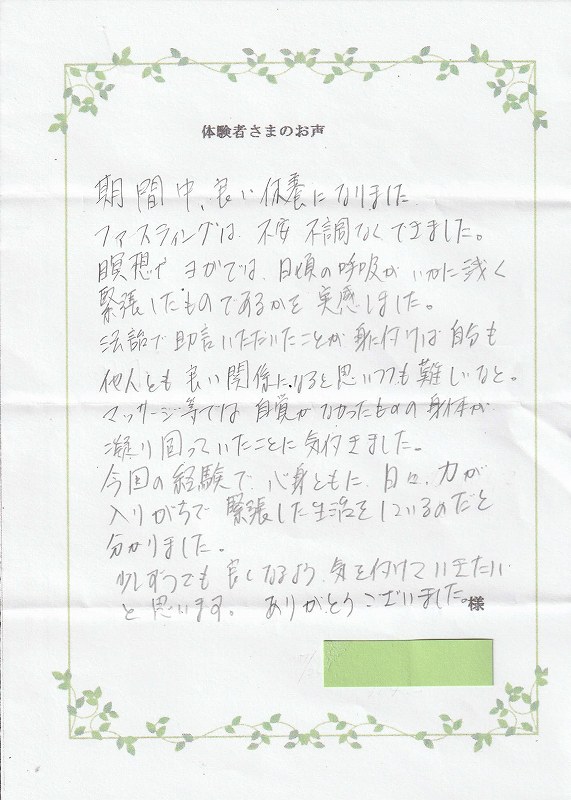 体験者さまのお声
期間中、良い休養になりました
ファスティングは、不安不調なくできました。
瞑想やヨガでは、日頃の呼吸がいかに浅く
緊張したものであるかを実感しました。
法話で助言いただいたことが身に付けば自分も
他人とも良い関係になると思いつつも難しいなと。
マッサージ等では自覚がなかったものの身体が
凝り固っていたことに気付きました。
今回の経験で、心身ともに、日々、力が
入りがちで緊張した生活をしているのだと
分かりました。
少しずつでも良くなるよう、気を付けていきたい
と思います。ありがとうございました。
様